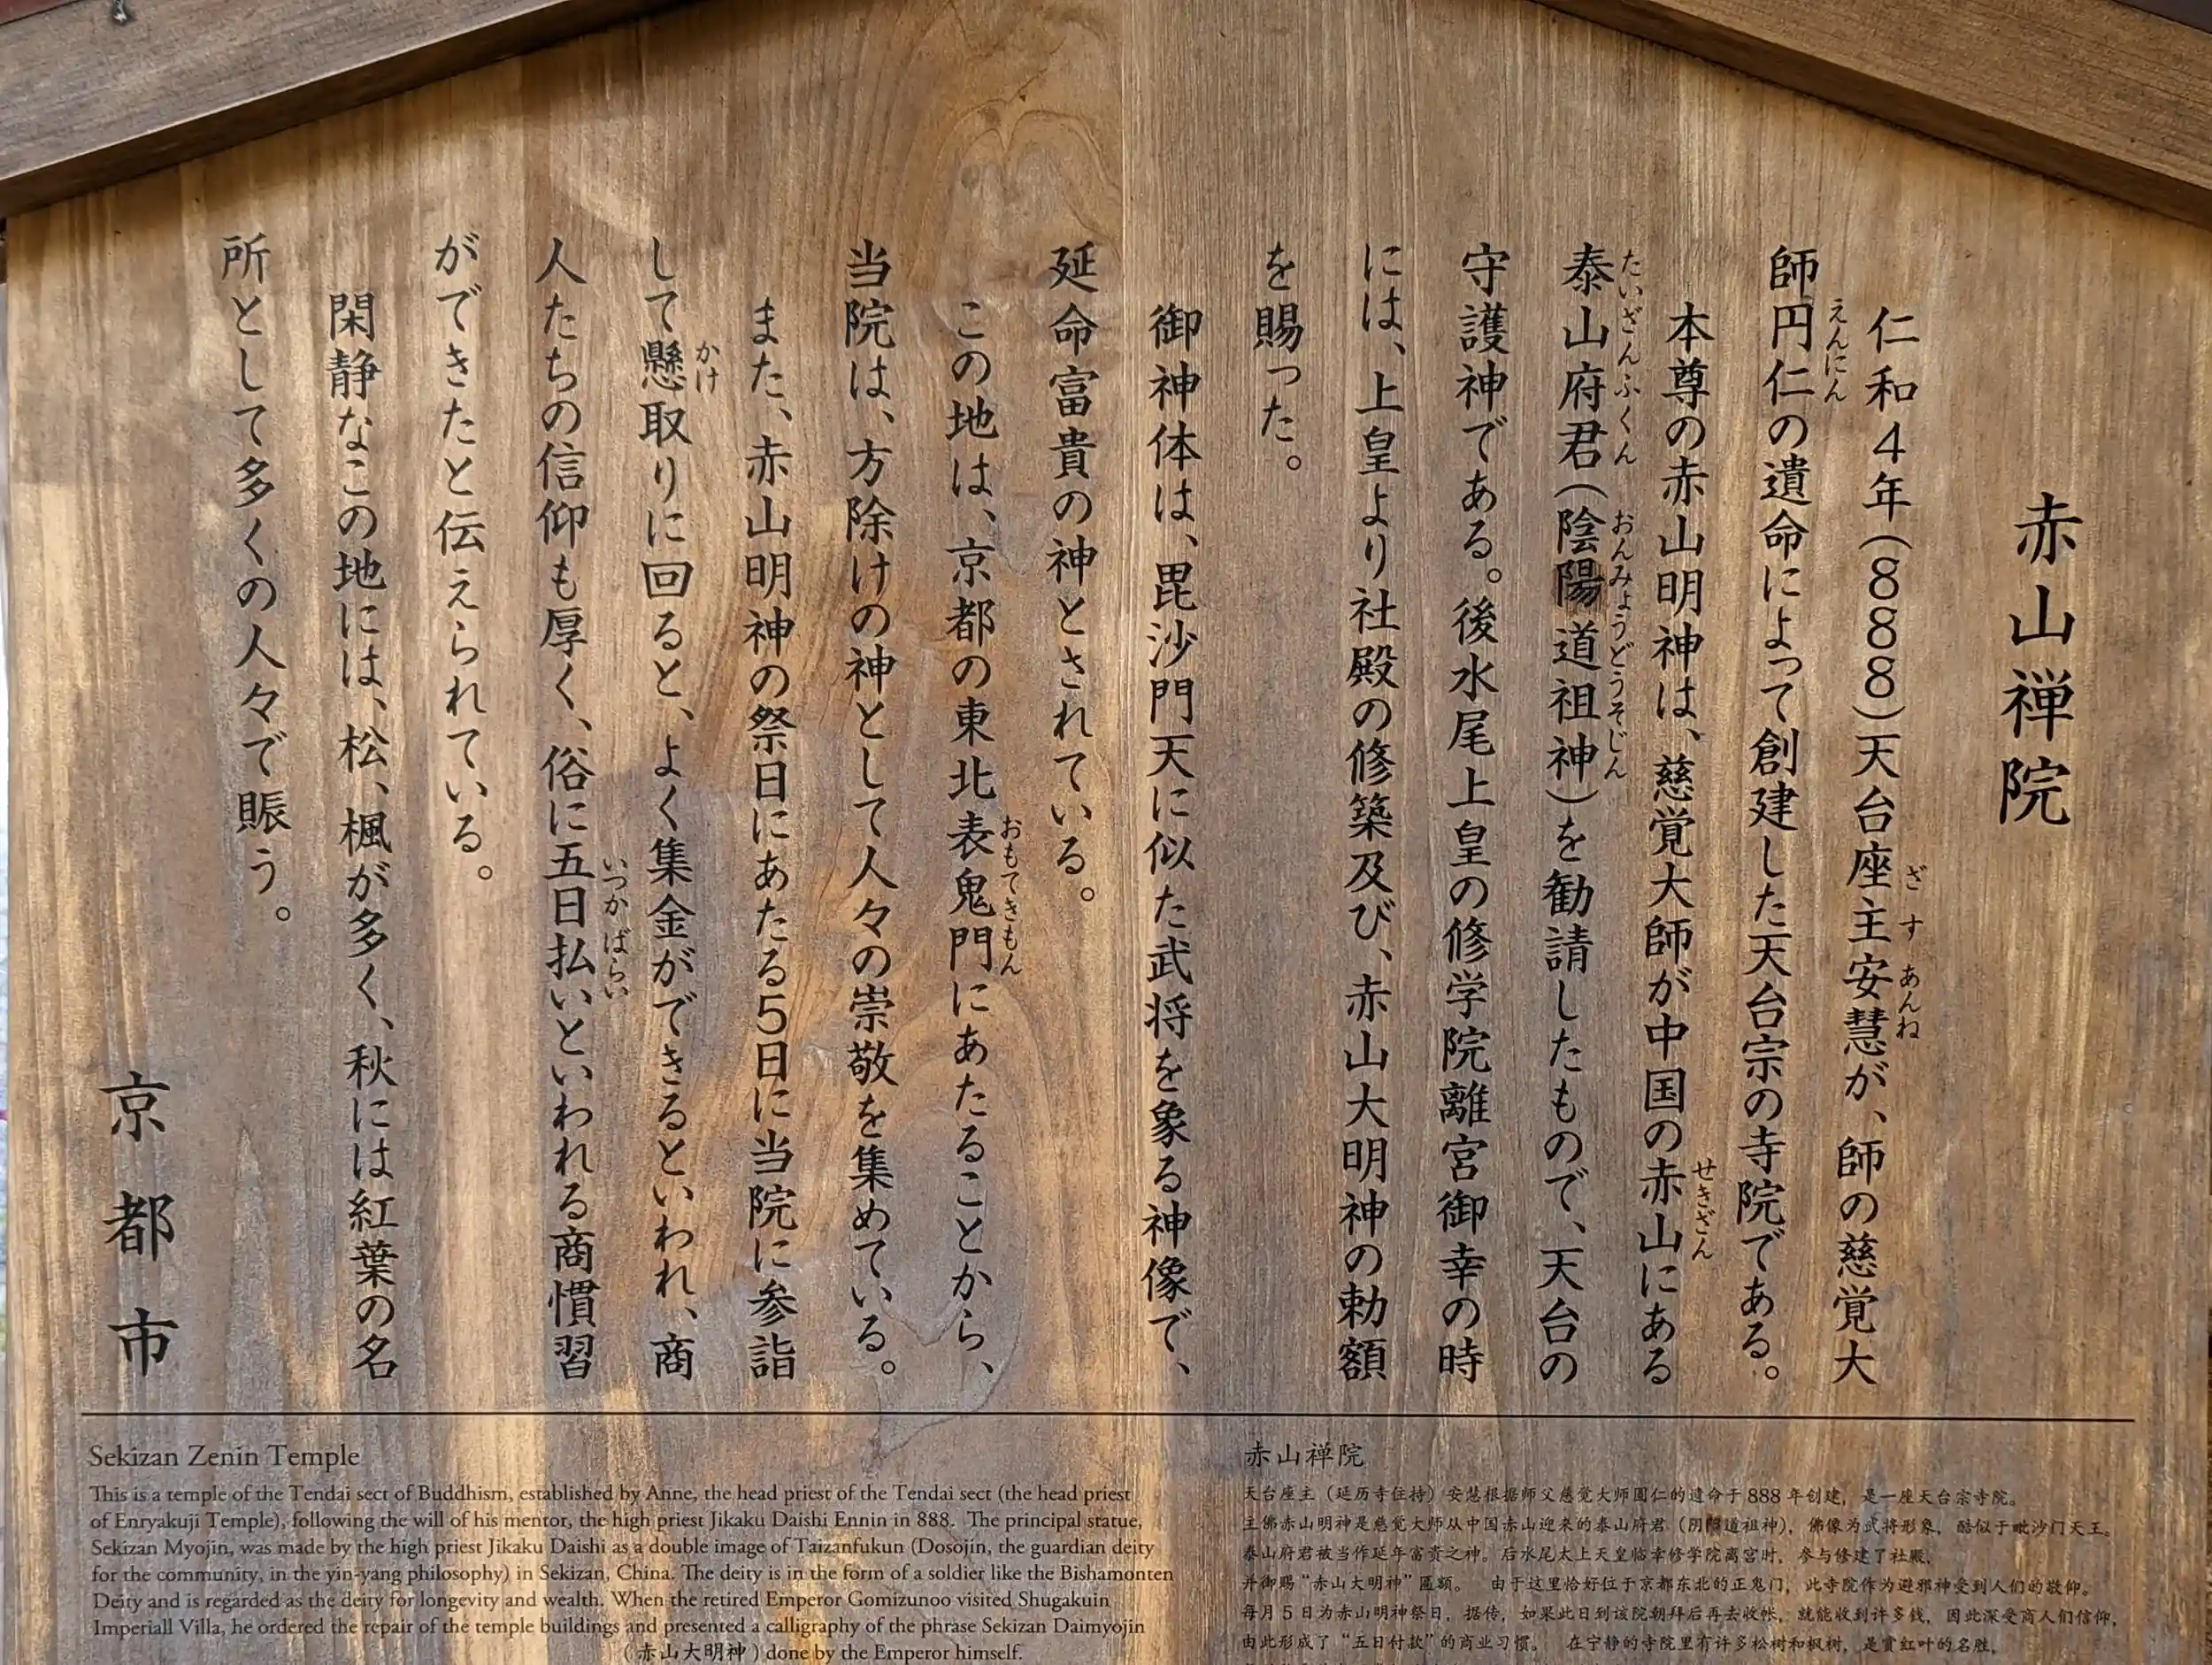 赤山禅院
仁和4年(888)天台座主安慧が、師の慈覚大
師円仁の遺命によって創建した天台宗の寺院である。
本尊の赤山明神は、慈覚大師が中国の赤山にある
泰山府君(陰陽道祖神)を勧請したもので、天台の
守護神である。後水尾上皇の修学院離宮御幸の時
には、上皇より社殿の修築及び、赤山大明神の勅額
を賜った。
御神体は、毘沙門天に似た武将を象る神像で、
延命富貴の神とされている。
この地は、京都の東北表鬼門にあたることから、
当院は、方除けの神として人々の崇敬を集めている。
また、赤山明神の祭日にあたる5日に当院に参詣
して懸取りに回ると、よく集金ができるといわれ、商
人たちの信仰も厚く、俗に五日払いといわれる商慣習
ができたと伝えられている。
閑静なこの地には、松、楓が多く、秋には紅葉の名
所として多くの人々で賑う。
京都市
ざす
あんね
えんにん
せきざん
たいざんふくん
おんみょうどうそじん
おもてきもん
かけ
いつかばらい
Sekizan Zenin Temple
This is a temple of the Tendai sect of Buddhism, established by Anne, the head priest of the Tendai sect (the head priest
of Enryakuji Temple), following the will of his mentor, the high priest Jikaku Daishi Ennin in 888. The principal statue,
Sekizan Myojin, was made by the high priest Jikaku Daishi as a double image of Taizanfukun (Dosojin, the guardian deity
for the community, in the yin-yang philosophy) in Sekizan, China. The deity is in the form of a soldier like the Bishamonten
Deity and is regarded as the deity for longevity and wealth. When the retired Emperor Gomizunoo visited Shugakuin
Imperiall Villa, he ordered the repair of the temple buildings and presented a calligraphy of the phrase Sekizan Daimyojin
(赤山大明神) done by the Emperor himself.
赤山禅院
天台座主(延历寺住持)安慧根据师父慈觉大师圆仁的遗命于888年创建,是一座天台宗寺院。
主佛赤山明神是慈觉大师从中国赤山迎来的泰山府君(阴陽道祖神),佛像为武将形象,酷似于毗沙门天王。
泰山府君被当作延年富贵之神。后水尾太上天皇临幸修学院离宫时,参与修建了社殿,
并御赐“赤山大明神”匾额。 由于这里恰好位于京都东北的正鬼门,此寺院作为避邪神受到人们的敬仰。
每月5日为赤山明神祭日,据传,如果此日到该院朝拜后再去收帐,就能收到许多钱,因此深受商人们信仰,
由此形成了“五日付款”的商业习惯。 在宁静的寺院里有许多松树和枫树,是赏红叶的名胜,